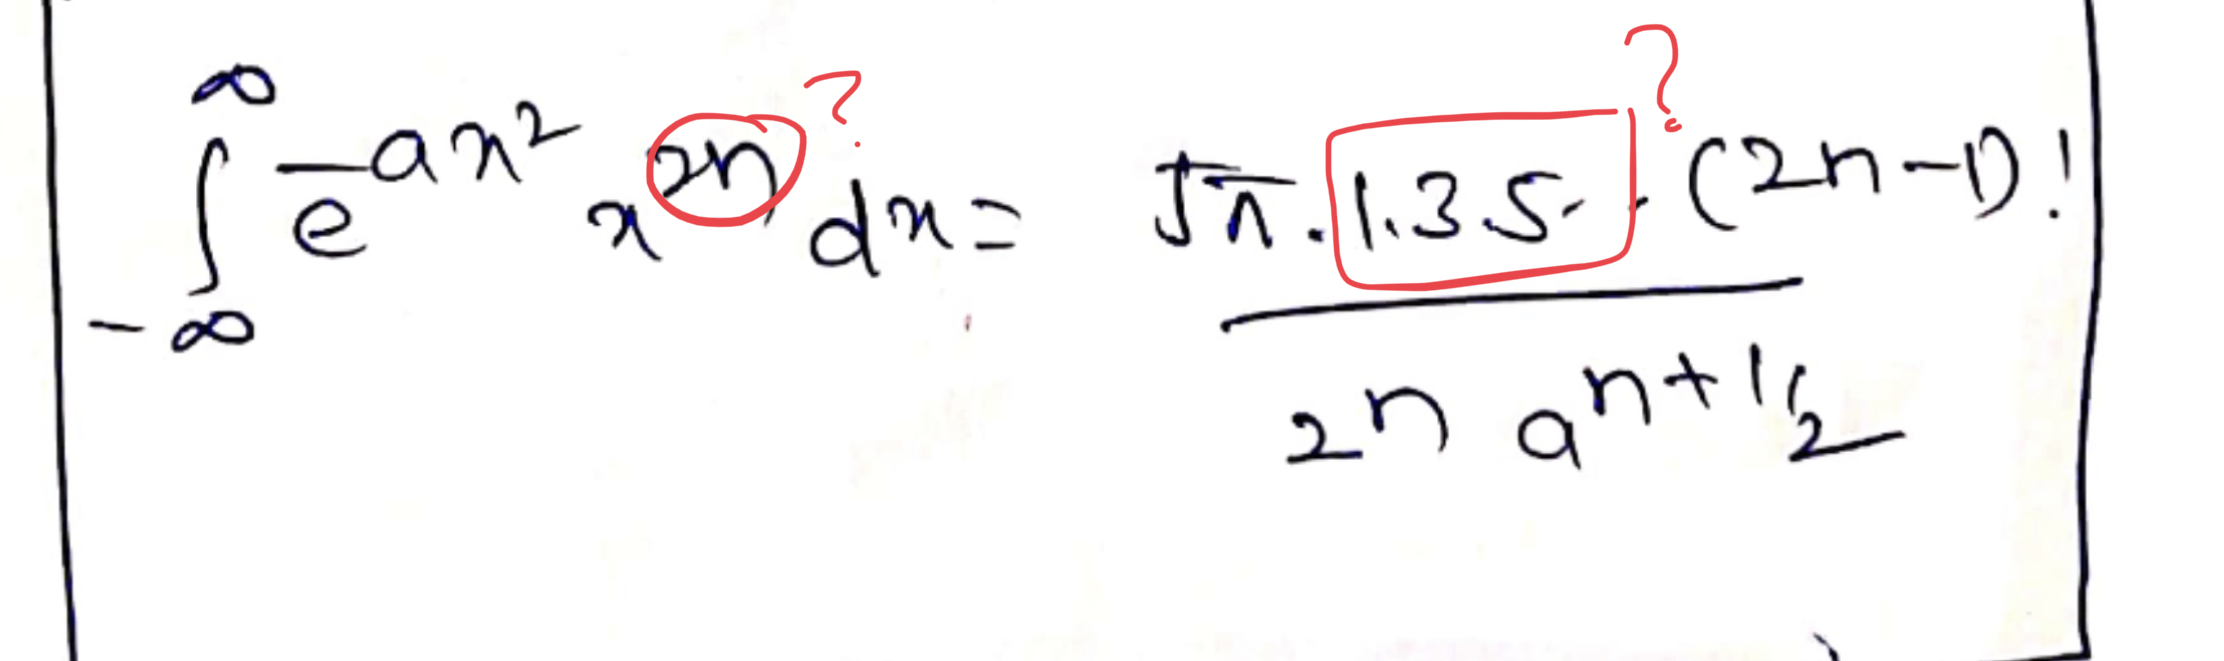 ∫_{-∞}^{∞} e^{-ax²} x^{2n} dx = \frac{√π · 1.3.5 - · (2n-1)!}{2^n a^{n+1/2}}
? ?